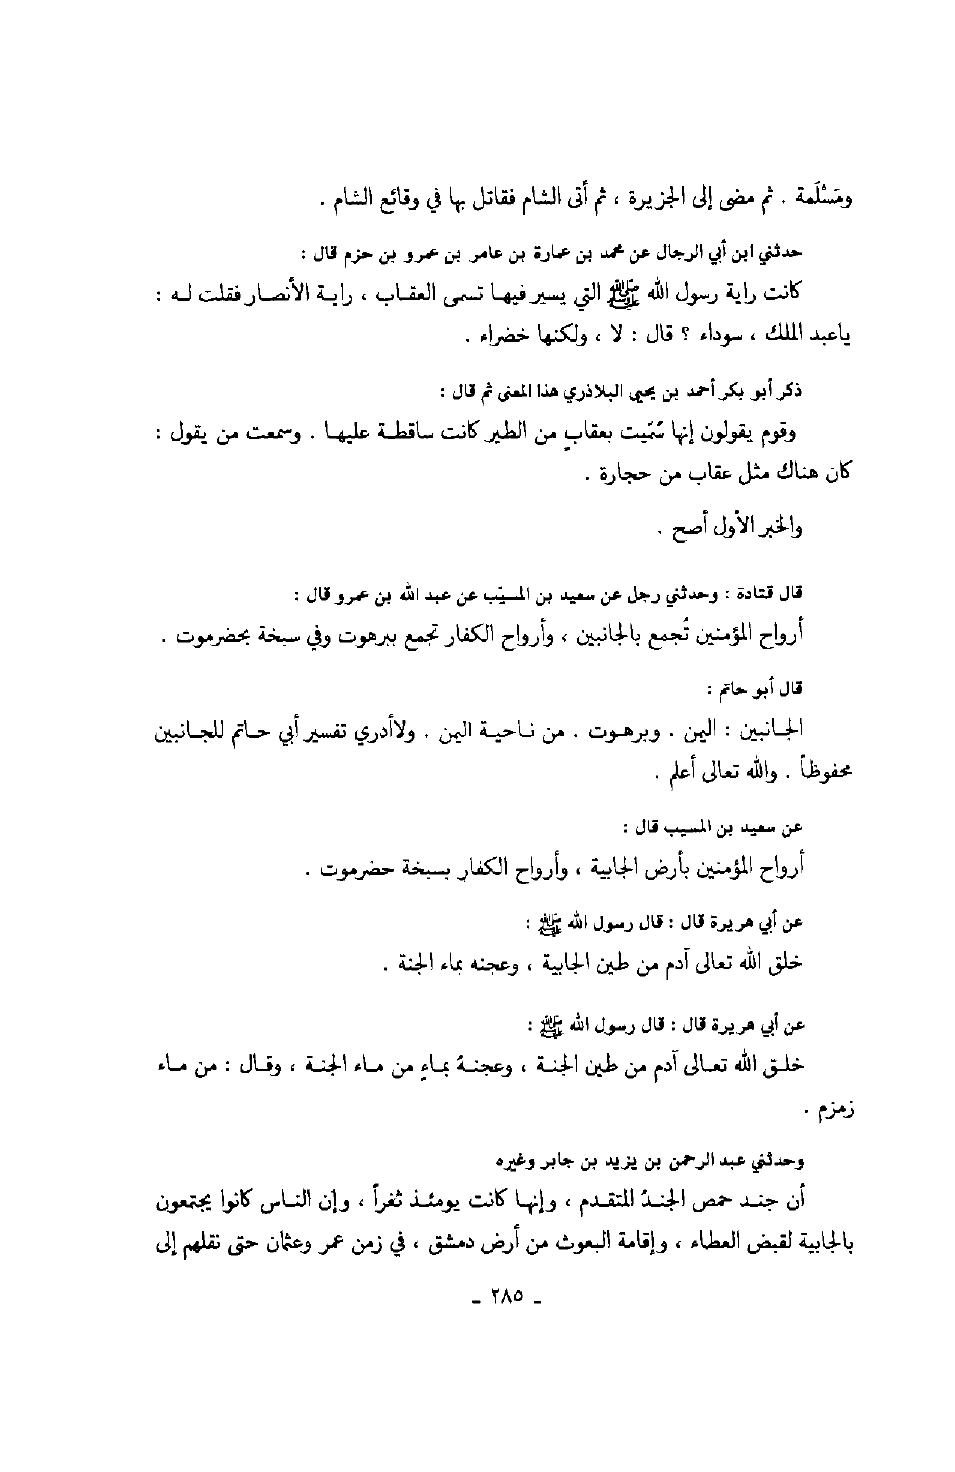 ومَسْلَمة . ثم مضى إلى الجزيرة ، ثم أتى الشام فقاتل بها في وقائع الشام .
حدثني ابن أبي الرجال عن محمد بن عمارة بن عامر بن عمرو بن حزم قال :
كانت راية رسول الله ﷺ التي يسير فيها تسمى العقاب ، راية الأنصار فقلت له :
ياعبد الملك ، سوداء ؟ قال : لا ، ولكنها خضراء .
ذكر أبو بكر أحمد بن يحيى البلاذري هذا المعنى ثم قال :
وقوم يقولون إنها سُمّيت بعقابٍ من الطير كانت ساقطة عليها . وسمعت من يقول :
كان هناك مثل عقاب من حجارة .
والخبر الأول أصح .
قال قتادة : وحدثني رجل عن سعيد بن المسيّب عن عبد الله بن عمرو قال :
أرواح المؤمنين تُجمع بالجانبين ، وأرواح الكفار تجمع ببرهوت وفي سبخة بحضرموت .
قال أبو حاتم :
الجانبين : اليمن . وبرهوت . من ناحية اليمن . ولاأدري تفسير أبي حاتم للجانبين
محفوظاً . والله تعالى أعلم .
عن سعيد بن المسيب قال :
أرواح المؤمنين بأرض الجابية ، وأرواح الكفار بسبخة حضرموت .
عن أبي هريرة قال : قال رسول الله ﷺ :
خلق الله تعالى آدم من طين الجابية ، وعجنه بماء الجنة .
عن أبي هريرة قال : قال رسول الله ﷺ :
خلق الله تعالى آدم من طين الجنة ، وعجنهُ بماءٍ من ماء الجنة ، وقال : من ماء
زمزم .
وحدثني عبد الرحمن بن يزيد بن جابر وغيره
أن جند حمص الجندُ المتقدم ، وإنها كانت يومئذ ثغراً ، وإن الناس كانوا يجتمعون
بالجابية لقبض العطاء ، وإقامة البعوث من أرض دمشق ، في زمن عمر وعثمان حتى نقلهم إلى
ـ ٢٨٥ ـ